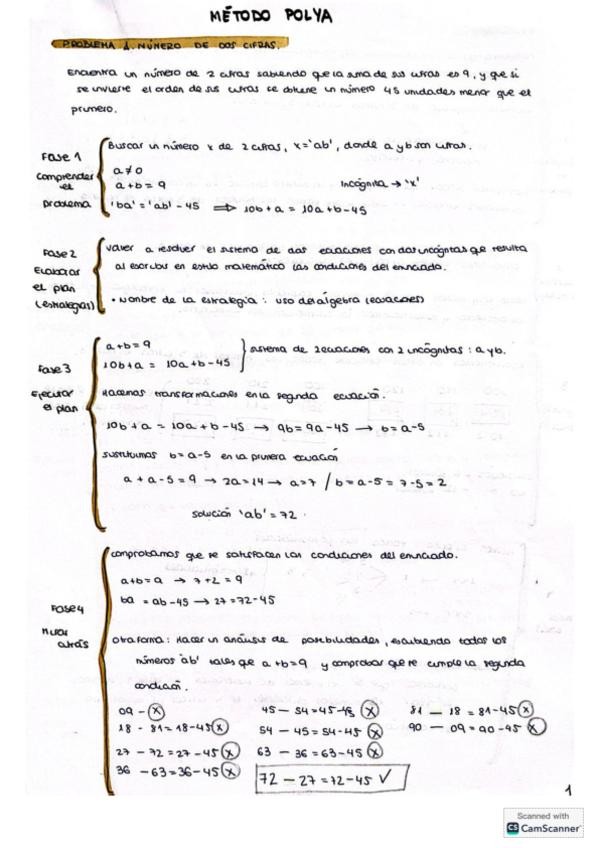 MÉTODO POLYA
PROBLEMA 1. NÚMERO DE DOS CIFRAS.
Encuentra un número de 2 cifras sabiendo que la suma de sus cifras es 9, y que si
se invierte el orden de sus cifras se obtiene un número 45 unidades menor que el
primero.
Fase 1
comprender
el
problema
Buscar un número x de 2 cifras, x='ab', donde a y b son cifras.
a≠0
a+b=9
Incógnita → 'x'
'ba'='ab'-45 ⟹ 10b+a = 10a+b-45
Fase 2
Elaborar
el plan
(estrategias)
volver a resolver el sistema de dos ecuaciones con dos incógnitas que resulta
al escribir en estilo matemático las condiciones del enunciado.
• Nombre de la estrategia: uso del álgebra (ecuaciones)
Fase 3
Ejecutar
el plan
a+b=9
10b+a = 10a+b-45
} sistema de 2 ecuaciones con 2 incógnitas: a y b.
Hacemos transformaciones en la segunda ecuación.
10b+a = 10a+b-45 → 9b=9a-45 → b=a-5
sustituimos b=a-5 en la primera ecuación
a+a-5=9 → 2a=14 → a=7 / b=a-5=7-5=2
solución 'ab'=72.
Fase 4
Mirar
atrás
comprobamos que se satisfacen las condiciones del enunciado.
a+b=a → 7+2=9
ba = ab-45 → 27=72-45
otra forma: Hacer un análisis de posibilidades, escribiendo todos los
números 'ab' tales que a+b=9 y comprobar que se cumple la segunda
condición.
09 - ⓧ 45 - 54=45-45 ⓧ 81 - 18=81-45 ⓧ
18 - 81=18-45 ⓧ 54 - 45=54-45 ⓧ 90 - 09=90-45 ⓧ
27 - 72=27-45 ⓧ 63 - 36=63-45 ⓧ
36 - 63=36-45 ⓧ 72 - 27=72-45 ✓
1
Scanned with
CS CamScanner